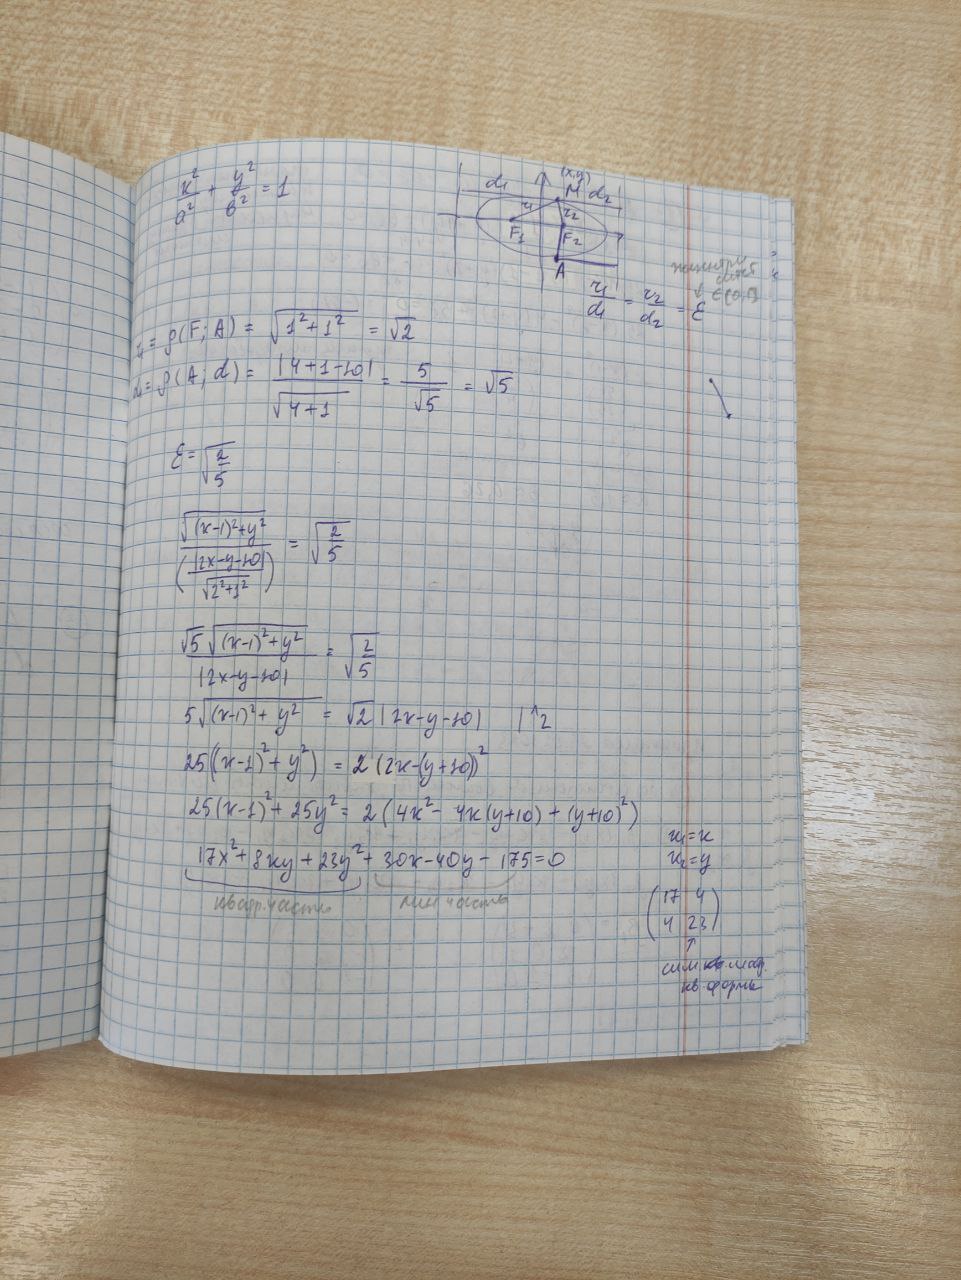 x²/a² + y²/b² = 1
(x,y)
d₁ M d₂
r₁ r₂
F₁ F₂
A
r₁/d₁ = r₂/d₂ = ε
r₁ = ρ(F; A) = √(1²+1²) = √2
d₁ = ρ(A; d) = |4+1-10|/√(4+1) = 5/√5 = √5
ε = √(2/5)
√((x-1)²+y²)/(|2x-y-10|/√(2²+1²)) = √(2/5)
√5 √((x-1)²+y²)/|2x-y-10| = √(2/5)
5√((x-1)²+y²) = √2 |2x-y-10| |↑2
25((x-1)²+y²) = 2(2x-(y+10))²
25(x-1)²+25y² = 2(4x²-4x(y+10)+(y+10)²)
17x²+8xy+23y²+30x-40y-175=0
квадр. часть лин. часть
x₁=x
x₂=y
(17 4
4 23)
↑
сим кв. мат.
кв. формы